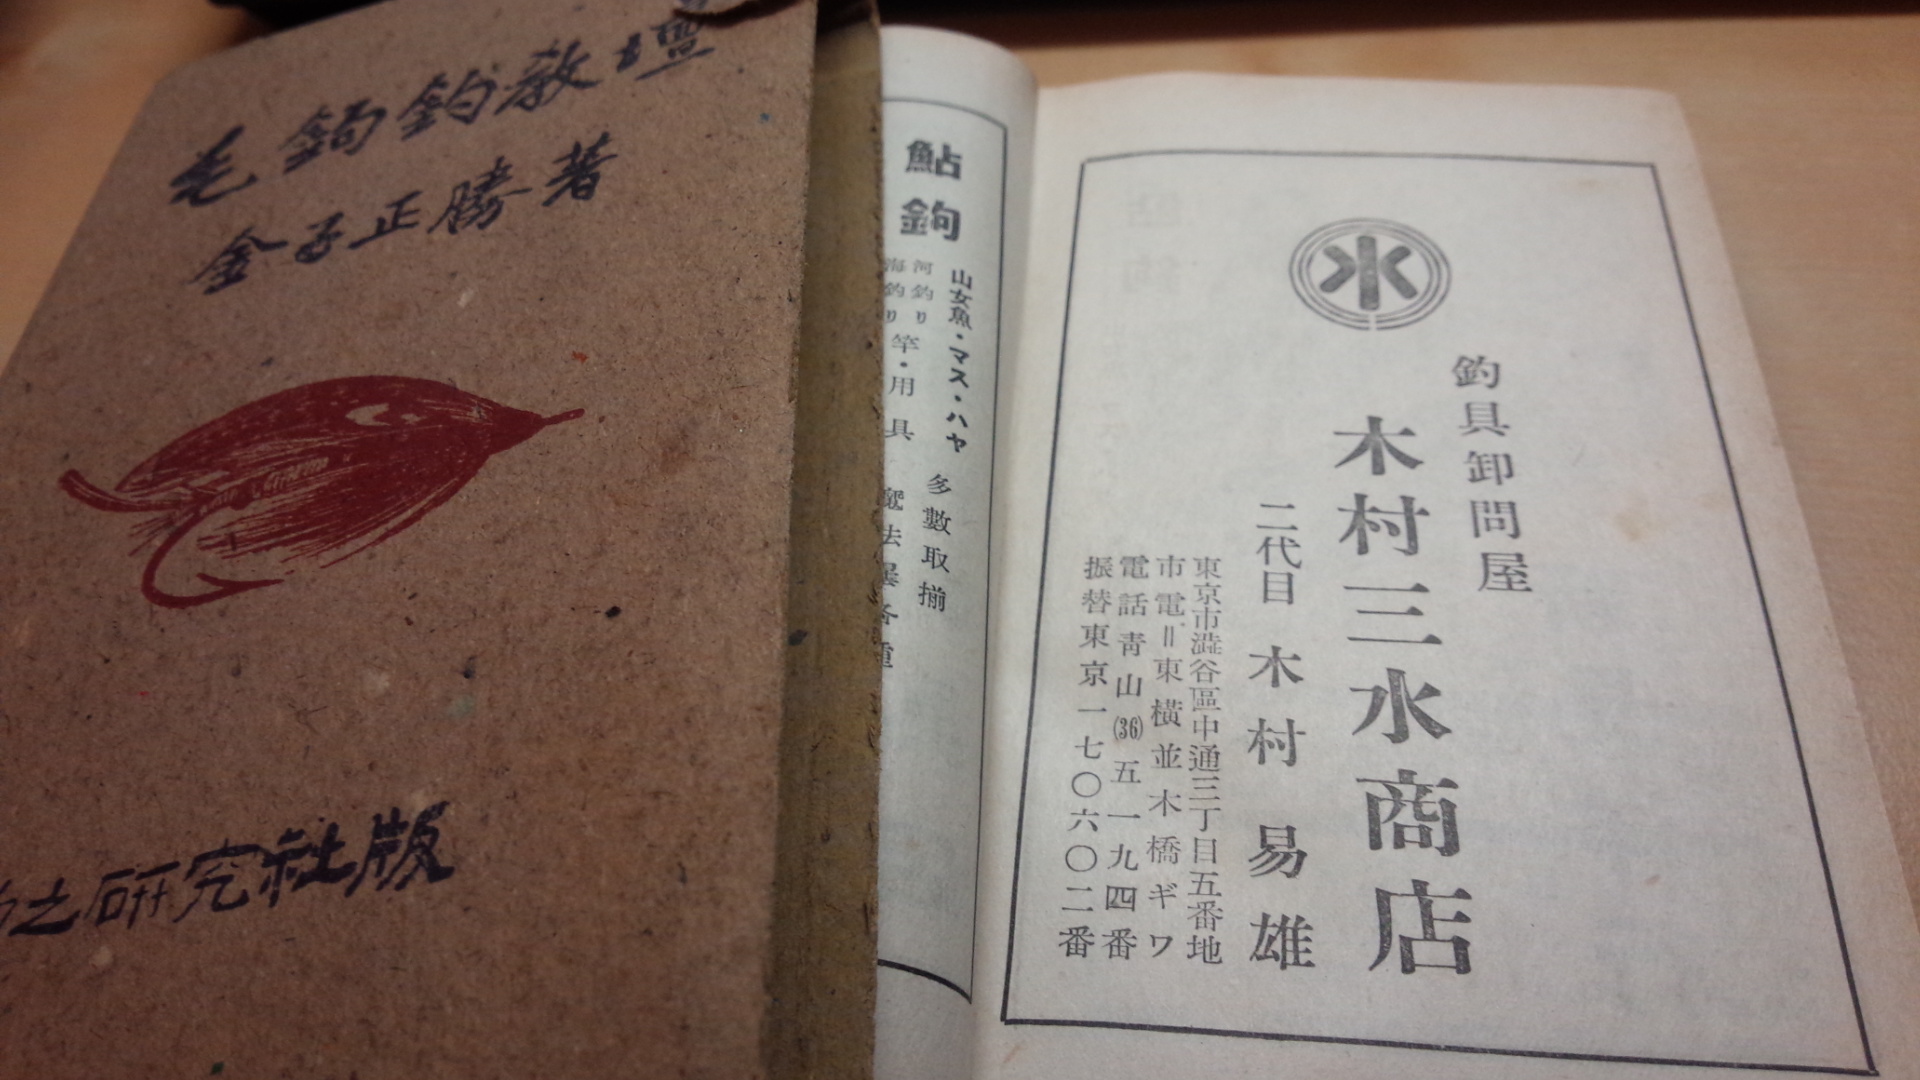 毛鉤釣教壇
金子正勝著
之研究社版
鮎鉤
山女魚・マス・ハヤ
河釣リ
海釣リ
竿・用具
多數取揃
水
釣具卸問屋
木村三水商店
二代目 木村易雄
東京市澁谷區中通三丁目五番地
市電＝東横並木橋ギワ
電話青山(36)五一九四番
振替東京一七〇六〇二番